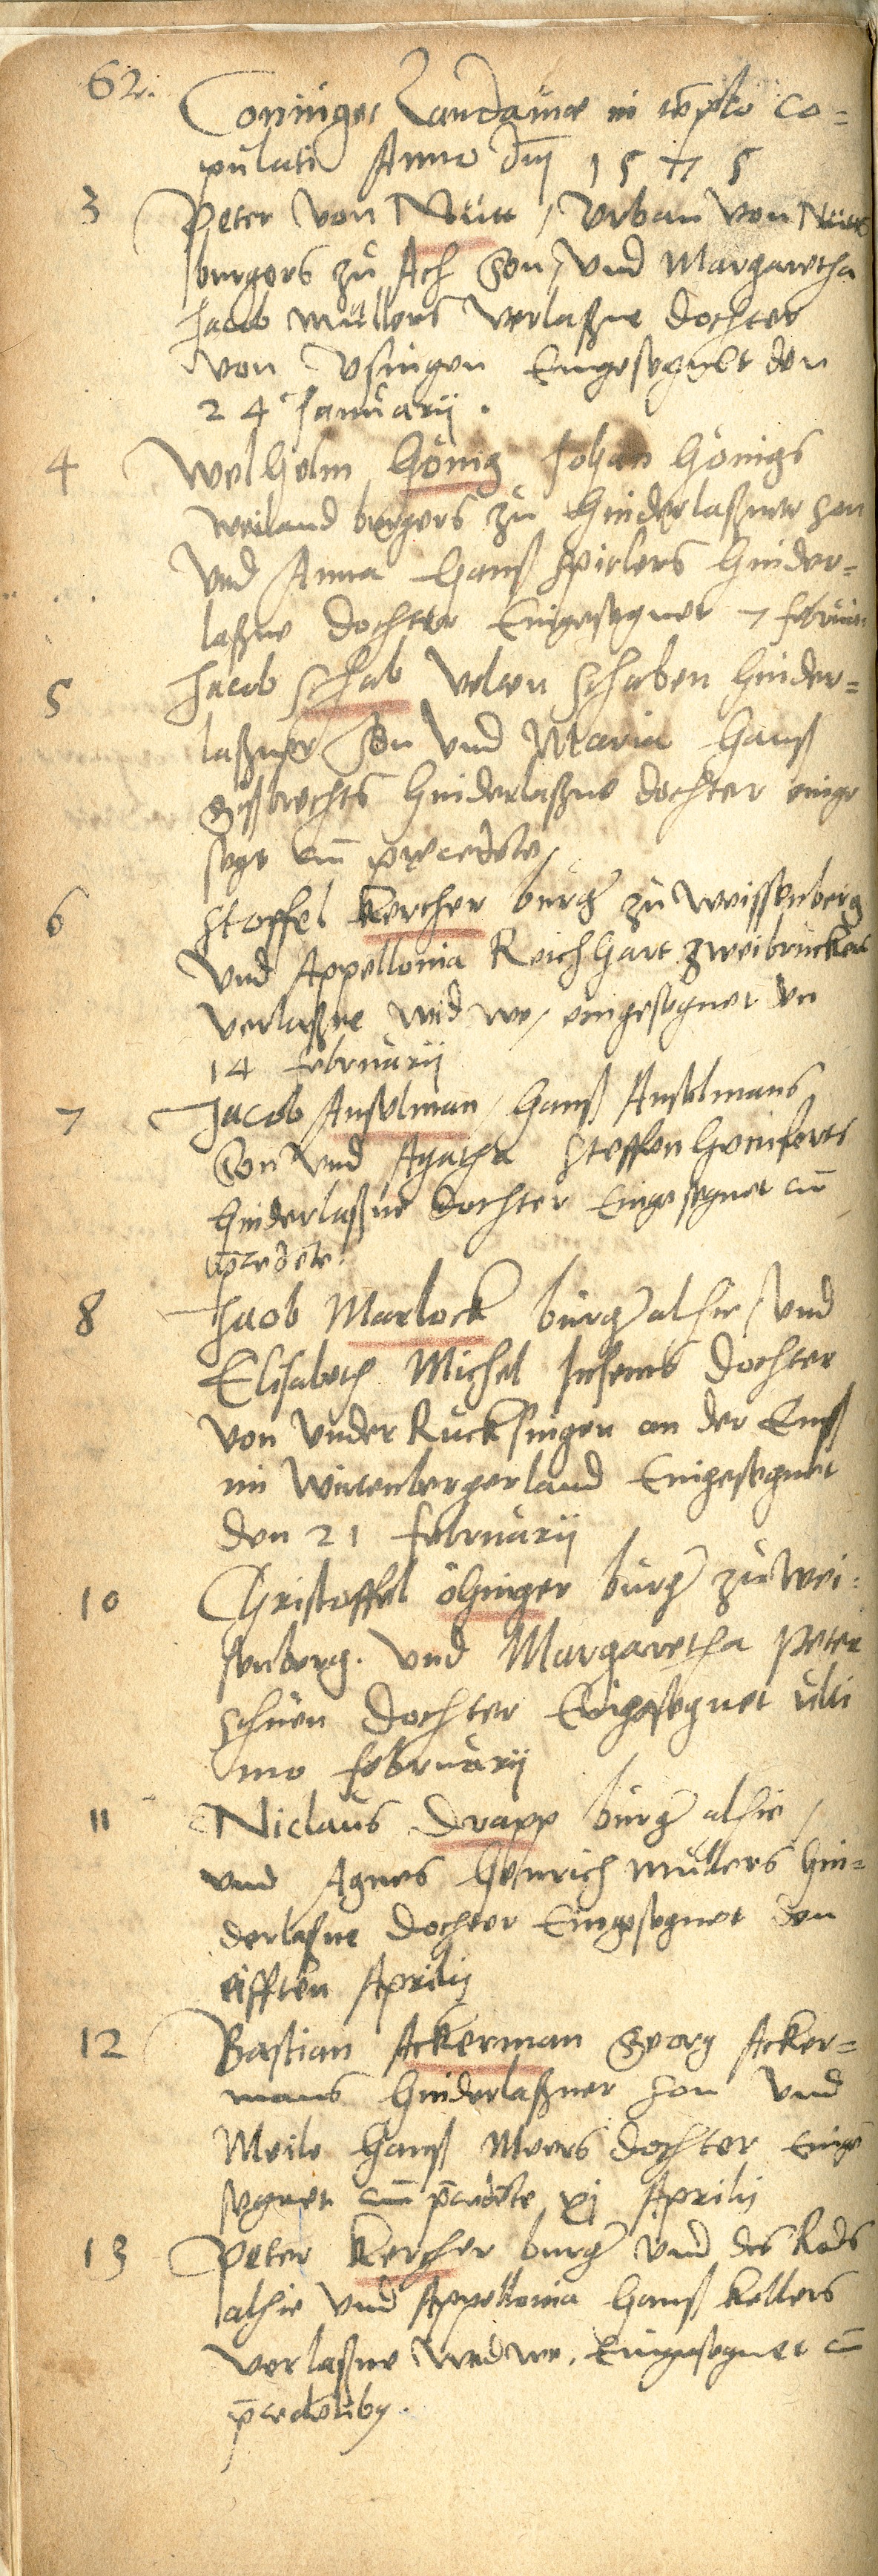 62.
Coniuges Landauiæ in tēplo co=
pulati Anno dnj 1575
3 Peter von Nütt / Vrban von Nütts
burgers zů Ach Son, Vnd Margaretha
Jacob Müllers Verlaßne dochter
von Vsingen Eingesegnet den
24 Januarij.
4 Welhelm Hönig Johan Hönigs
Weiland burgers zu hinderlaßner son
Vnd Anna Hanß Spielers hinder=
laßne dochter Eingesegnet 7 februar
5 Jacob Schab Velten Schaben hinder=
laßner Son Vnd Maria Hanß
Gißbrechts hinderlaßne dochter einge
segt cū precedēte /
6 Stoffel Kercher burger zu Weissenberg
Vnd Appellonia Reichhart Zweibruckers
Verlaßne Widwe / eingesegnet den
14 februarij
7 Jacob Anselman / Hanß Anselmans
Son Vnd Agatha Steffen
hinderlaßne dochter Eingesegnet cū
p̄cedēte.
8 Jacob Marlock burger alhie / Vnd
Elisabeth Michel dochter
von Vnder Ruckßingen an der Entz
im Wirtenbergerland Eingesegnet
den 21 februarij
10 Christoffel öhinger burger zu Wei=
senberg. Vnd Margaretha Peter
Schüen dochter Eingesegnet ulti
mo februarij
11 Niclaus Drapp burger alhie /
Vnd Agnes Henrich Müllers hin=
derlaßne dochter Eingesegnet den
eifften Aprilis
12 Bastian Ackerman Georg Acker=
mans hinderlaßner son Vnd
Meile Hanß Meers dochter Einge
segnet cū p̄cedēte xj Aprilis
13 Peter Kercher burger Vnd des Rads
alhie Vnd Appellonia Hanß Kellers
Verlaßne Wedwe. Eingesegnet cū
p̄cedētibg.